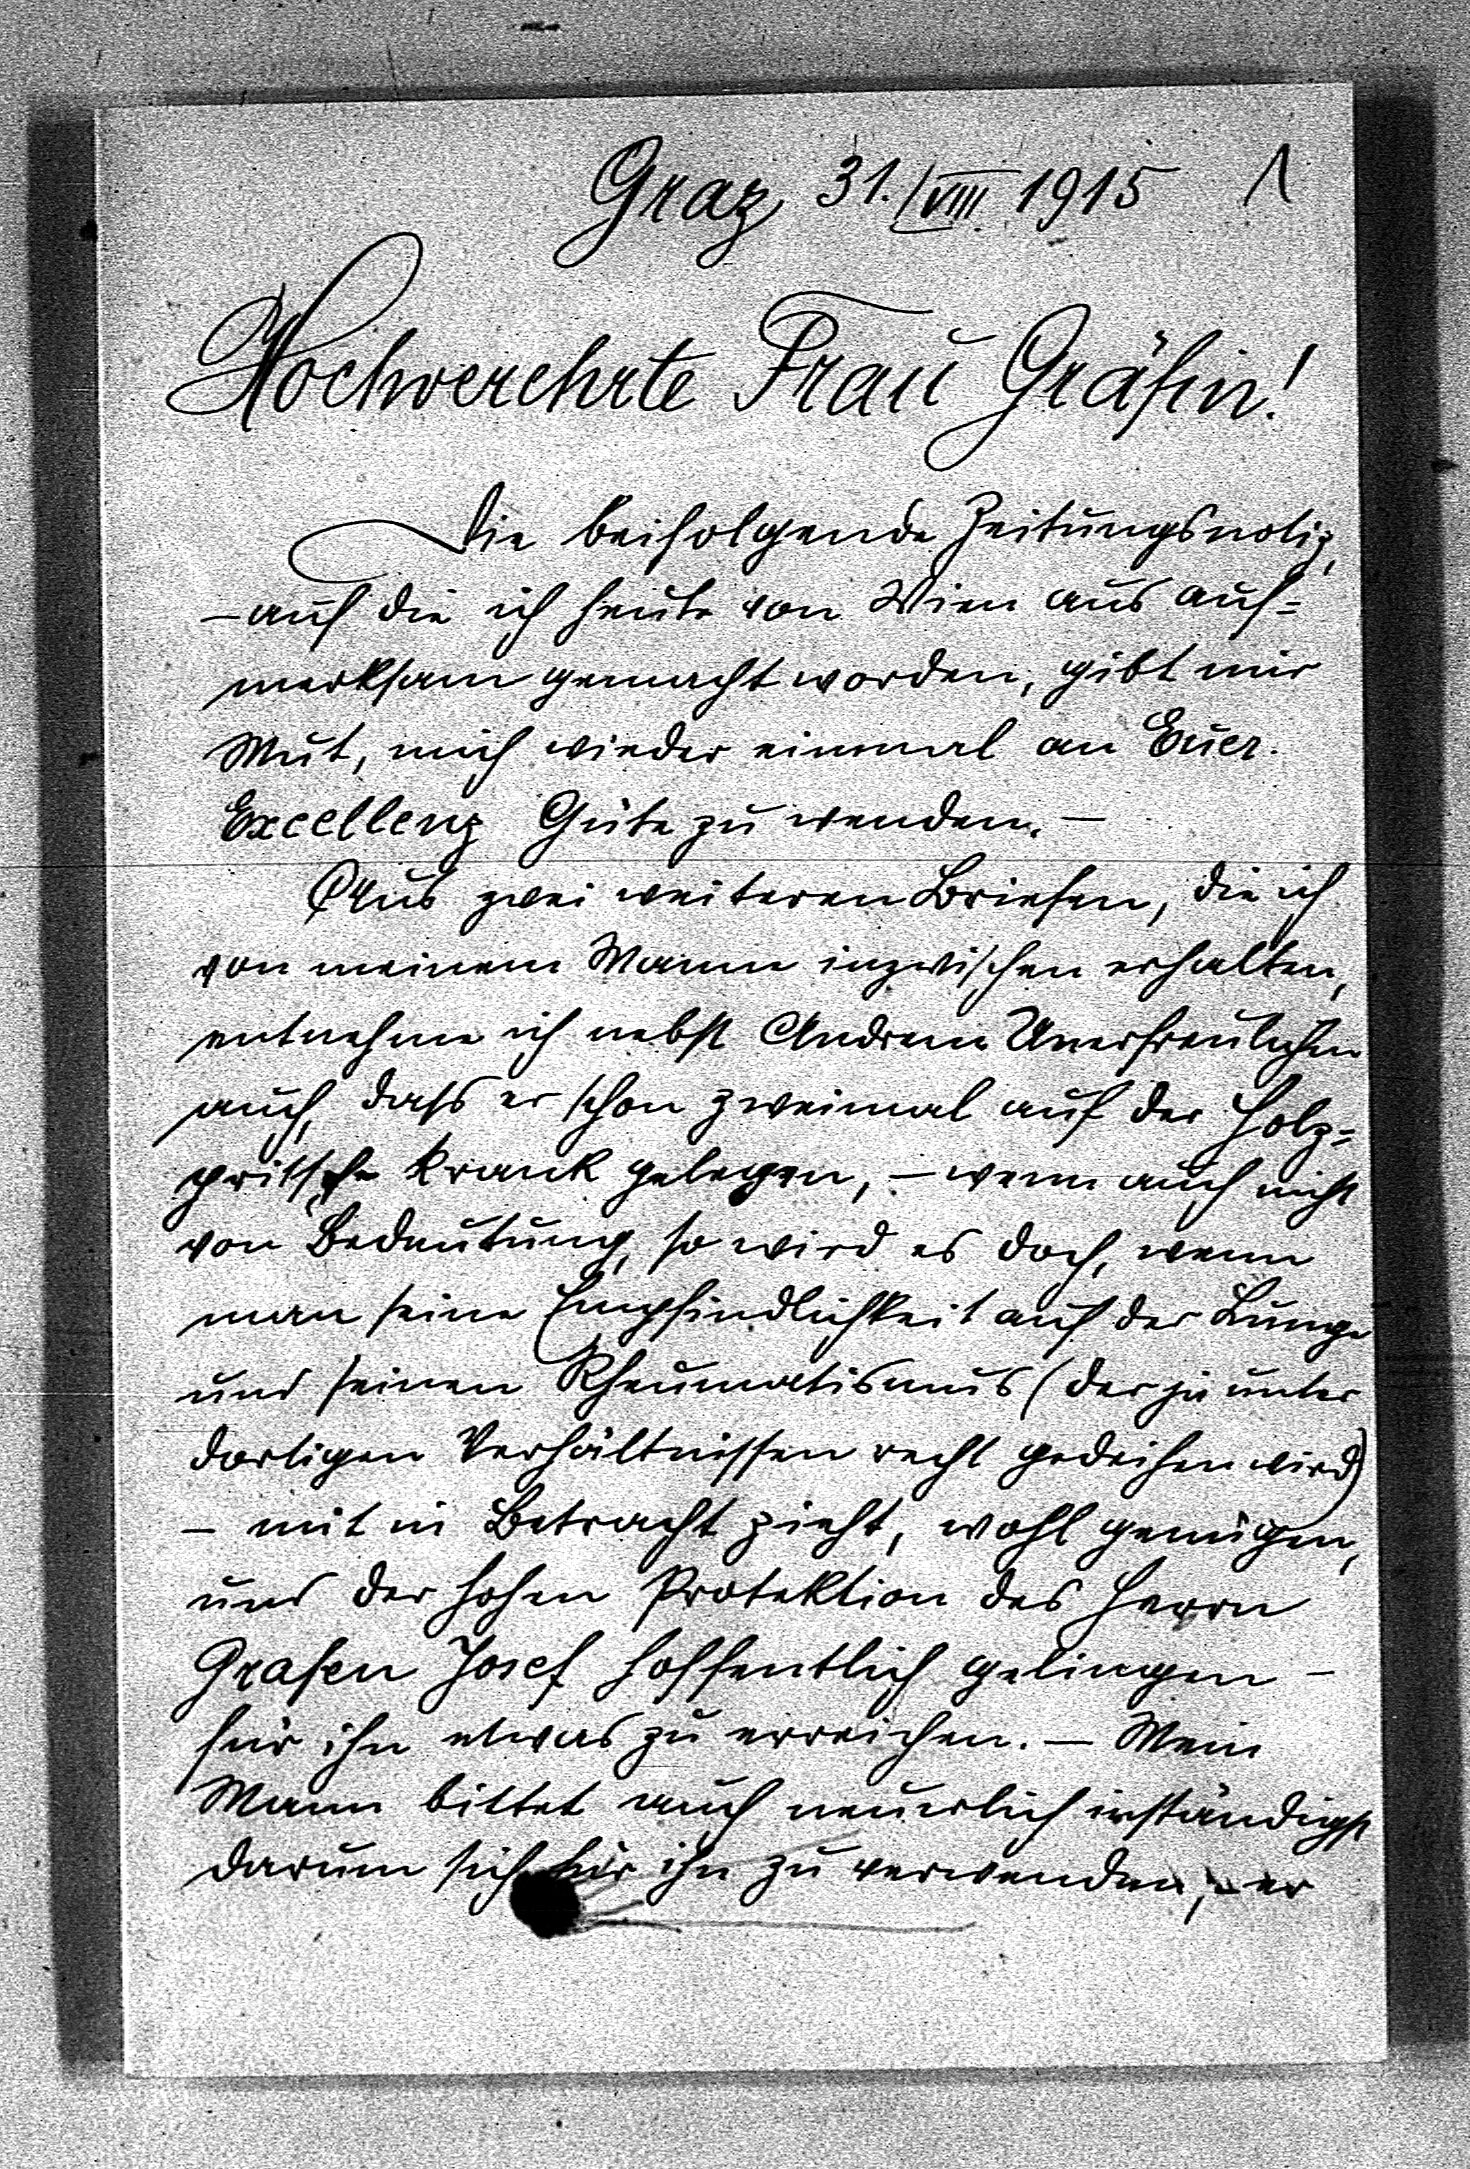 Graz, 31./VIII 1915
1
Hochverehrte Frau Gräfin!
Die beifolgende Zeitungsnotiz,
– auf die ich heute von Wien aus auf=
merksam gemacht worden, gibt mir
Mut, mich wieder einmal an Euer.
Excellenz Güte zu wenden. –
Aus zwei weiteren Briefen, die ich
von meinem Manne inzwischen erhalten,
entnehme ich nebst Andrem Unerfreulichen
auch, dass er schon zweimal auf der Holz=
pritsche krank gelegen, – wenn auch nicht
von Bedeutung, so wird es doch, wenn
man seine Empfindlichkeit auf der Lunge
und seinen Rheumatismus (der ja unter
dortigen Verhältnissen recht gedeihen wird)
– mit in Betracht zieht, wohl genügen,
und der hohen Protektion des Herrn
Grafen Josef hoffentlich gelingen –
für ihn etwas zu erreichen. – Mein
Mann bittet auch neuerlich inständigst
darum sich für ihn zu verwenden, – er